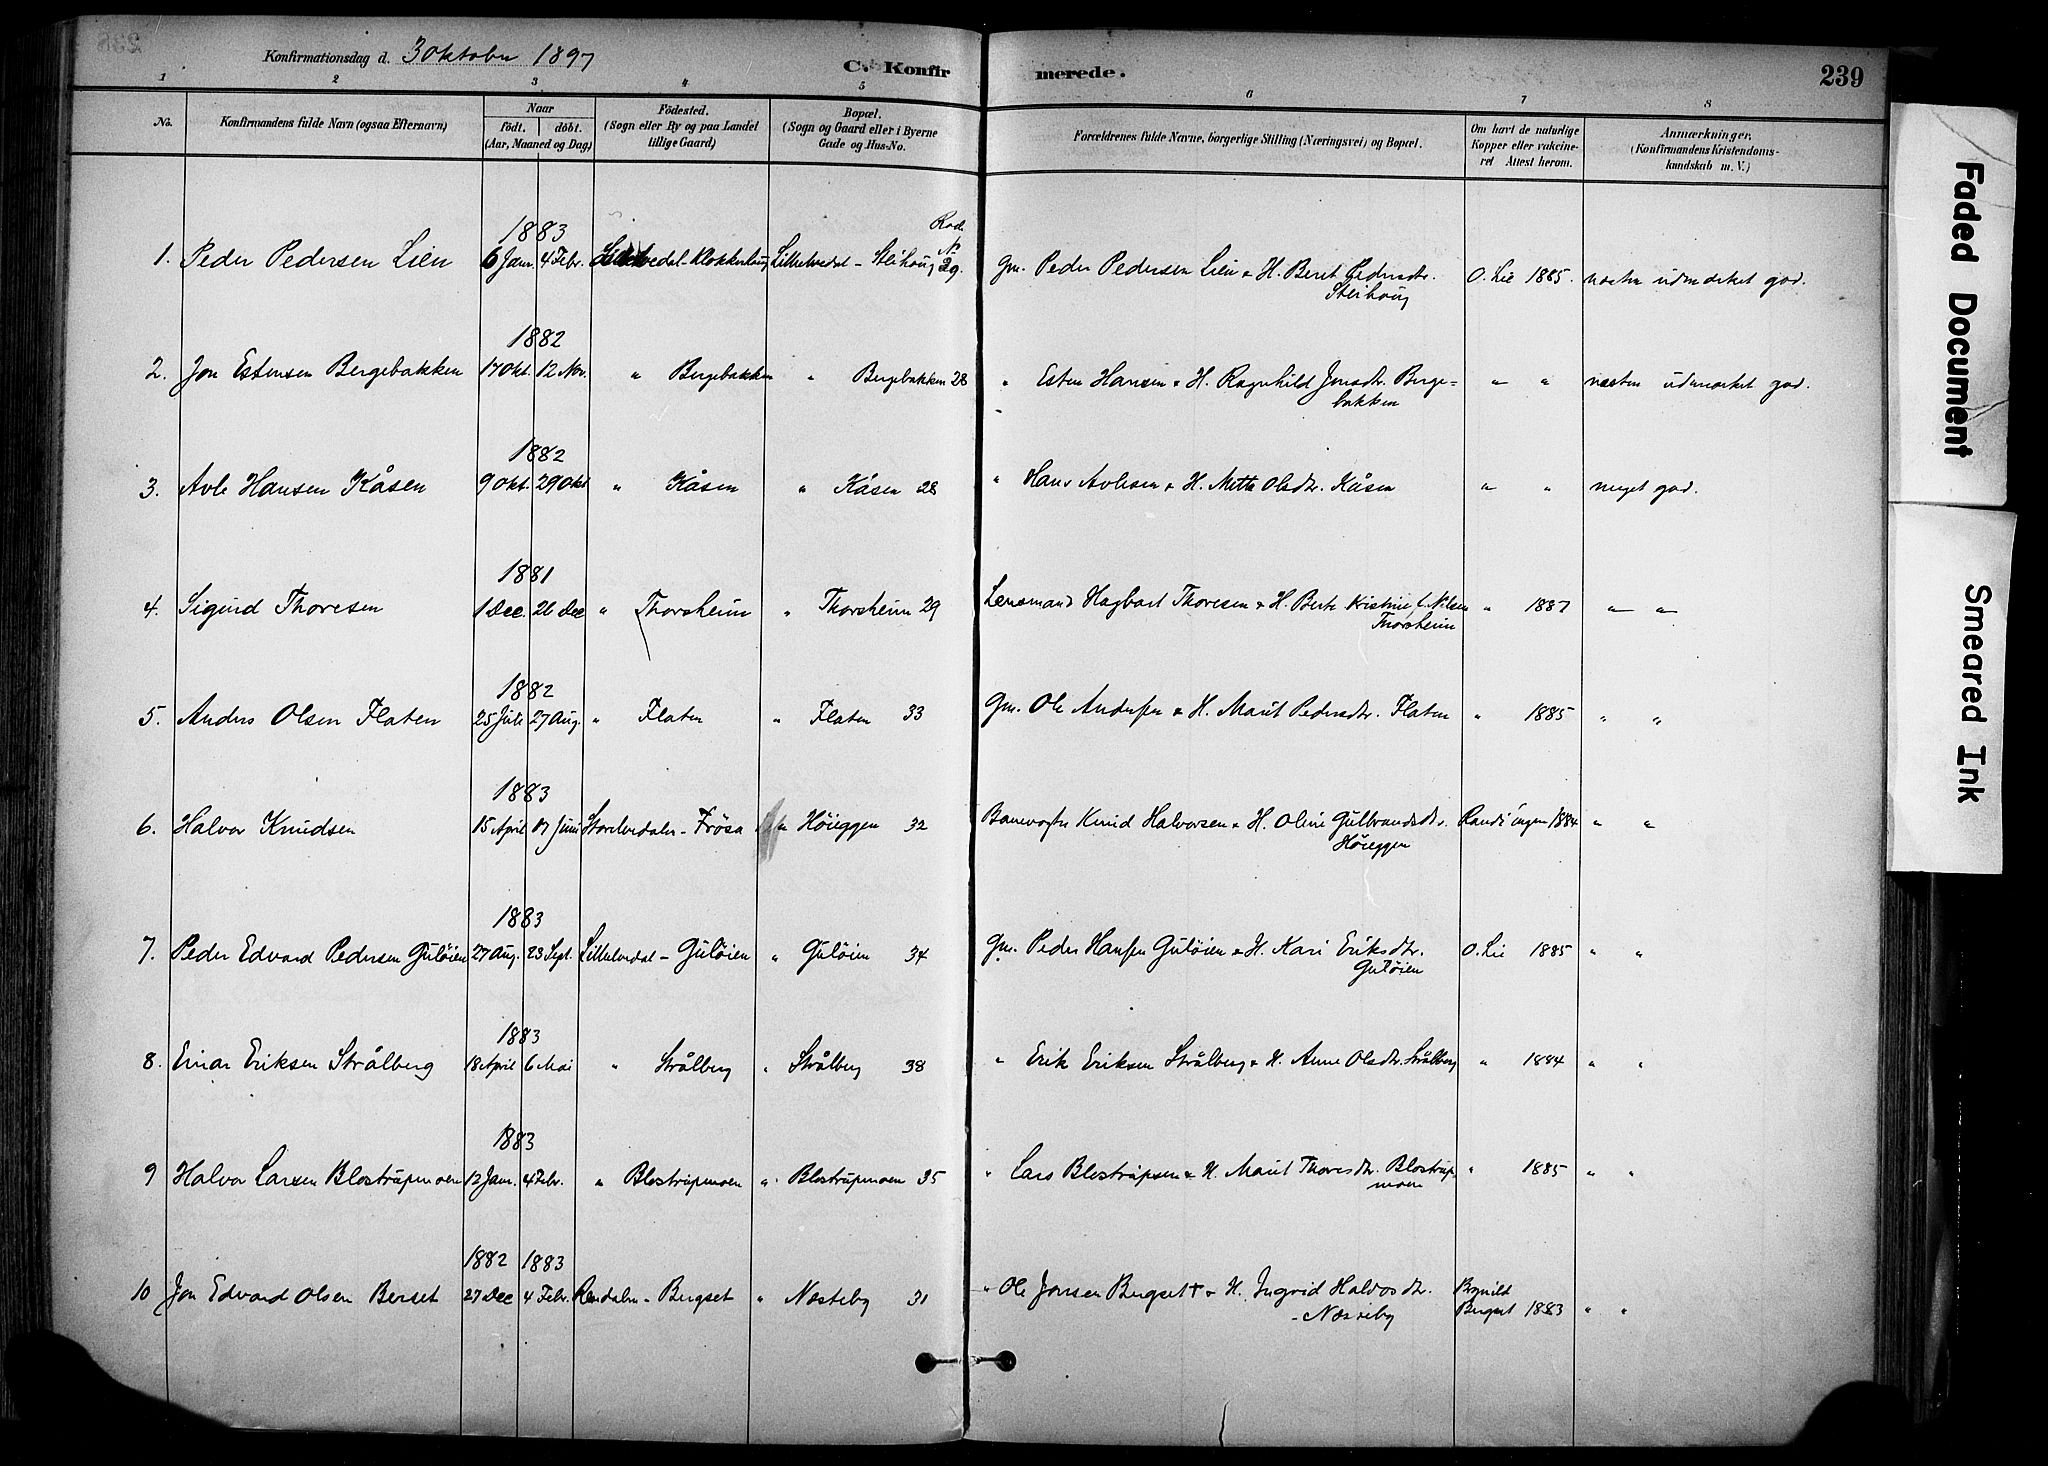 Konfirmationsdag d. 3 Oktober 1897
C. Konfirmerede.
239
1 2 3 4 5 6 7 8
No.
Konfirmandens fulde Navn (ogsaa Efternavn)
Naar
födt. döbt.
(Aar, Maaned og Dag)
Födested.
(Sogn eller By og paa Landet
tillige Gaard)
Bopæl.
(Sogn og Gaard eller i Byerne
Gade og Hus-No.
Forældrenes fulde Navne, borgerlige Stilling (Næringsvei) og Bopæl.
Om havt de naturlige
Kopper eller vakcine-
ret Attest herom.
Anmærkninger.
(Konfirmandens Kristendoms-
kundskab m. V.)
Rode
No
1883
1. Peder Pedersen Lien 6 Jan. 4 Febr. Lilleelvedal - Klokkerhaug Lilleelvedal - Steihoug 29. Gm. Peder Pedersen Lien & H. Beret Pedersdtr. O. Lie 1885. næsten udmærket god.
Steihoug
1882
2. Jon Estensen Bergebakken 17 Okt. 12 Nov. " Bergebakken " Bergebakken 28 " Esten Hansen & H. Ragnhild Jonsdtr. Berge- " " næsten udmærket god.
bakken
1882
3. Avle Hansen Kåsen 9 Okt. 29 Okt " Kåsen " Kåsen 28 " Hans Avlesen & H. Mette Olsdtr. Kåsen " " meget god.
1881
4. Sigurd Thoresen 1 Dec. 26 Dec " Thorsheim " Thorsheim 29 Lensmand Hagbart Thoresen & H. Berte Kristine f. Nilsen " 1887 " "
Thorsheim
1882
5. Anders Olsen Flaten 25 Juli 27 Aug. " Flaten " Flaten 33 Gm. Ole Andersen & H. Marit Pedersdtr. Flaten " 1885 " "
1883
6. Halvor Knudsen 15 April 17 Juni Storelvedalen - Frösa " Höieggen 32 Banevogter Knud Halvorsen & H. Oline Gulbrandsdtr. 1884 " "
Höieggen
1883
7. Peder Edvard Pedersen Gulöien 27 Aug. 23 Sept. Lilleelvedal - Gulöien " Gulöien 34 Gm. Peder Hansen Gulöien & H. Kari Eriksdtr. O. Lie 1885 " "
Gulöien
1883
8. Einar Eriksen Strålberg 18 April 6 Mai " Strålberg " Strålberg 38 " Erik Eriksen Strålberg & H. Anne Olsdtr. Strålberg " 1884 " "
1883
9 Halvor Larsen Blostrupmoen 12 Jan. 4 Febr. " Blostrupmoen " Blostrupmoen 35 " Lars Blostrupsen & H. Marit Thoresdtr. Blostrup- " 1885 " "
moen
1882 1883
10 Jon Edvard Olsen Berset 27 Dec 4 Febr. Rendalen - Bergset " Næsteby 31 " Ole Jonsen Bergset † & H. Ingrid Halvorsdtr. Brynild
- Næsteby Bergset 1883 " "
Faded Document
Smeared Ink